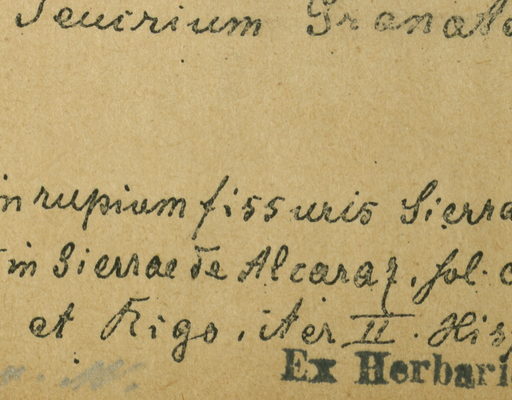 Teucrium Granate
in rupium fissuris Sierra
in Sierrae de Alcaraz, sol. c
et Rigo, iter II. His
Ex Herbari